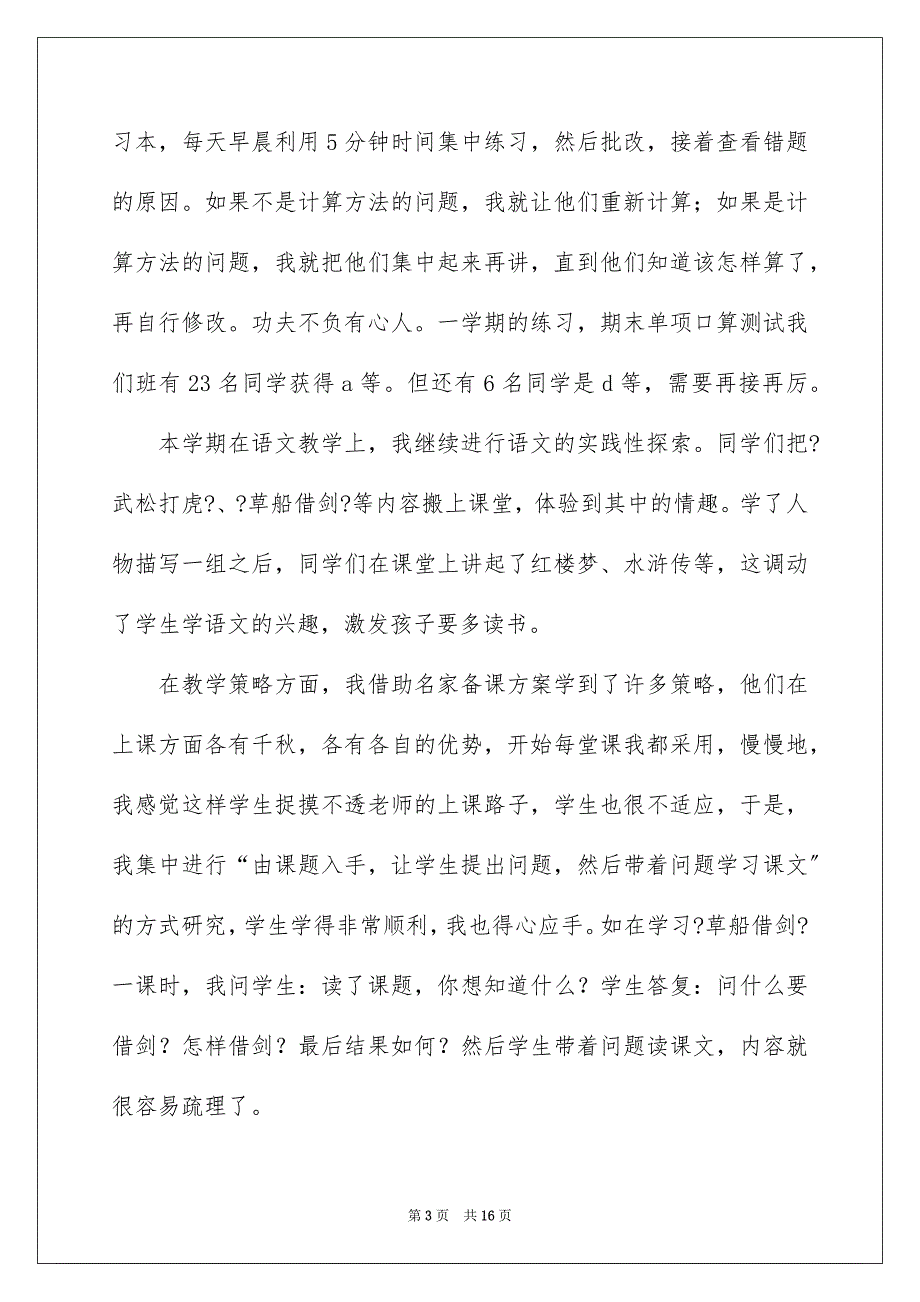 习本，每天早晨利用 5 分钟时间集中练习，然后批改，接着查看错题
的原因。如果不是计算方法的问题，我就让他们重新计算；如果是计
算方法的问题，我就把他们集中起来再讲，直到他们知道该怎样算了，
再自行修改。功夫不负有心人。一学期的练习，期末单项口算测试我
们班有 23 名同学获得 a 等。但还有 6 名同学是 d 等，需要再接再厉。
本学期在语文教学上，我继续进行语文的实践性探索。同学们把?
武松打虎?、?草船借剑?等内容搬上课堂，体验到其中的情趣。学了人
物描写一组之后，同学们在课堂上讲起了红楼梦、水浒传等，这调动
了学生学语文的兴趣，激发孩子要多读书。
在教学策略方面，我借助名家备课方案学到了许多策略，他们在
上课方面各有千秋，各有各自的优势，开始每堂课我都采用，慢慢地，
我感觉这样学生捉摸不透老师的上课路子，学生也很不适应，于是，
我集中进行“由课题入手，让学生提出问题，然后带着问题学习课文″
的方式研究，学生学得非常顺利，我也得心应手。如在学习?草船借剑?
一课时，我问学生：读了课题，你想知道什么？学生答复：问什么要
借剑？怎样借剑？最后结果如何？然后学生带着问题读课文，内容就
很容易疏理了。
第 3 页 共 16 页